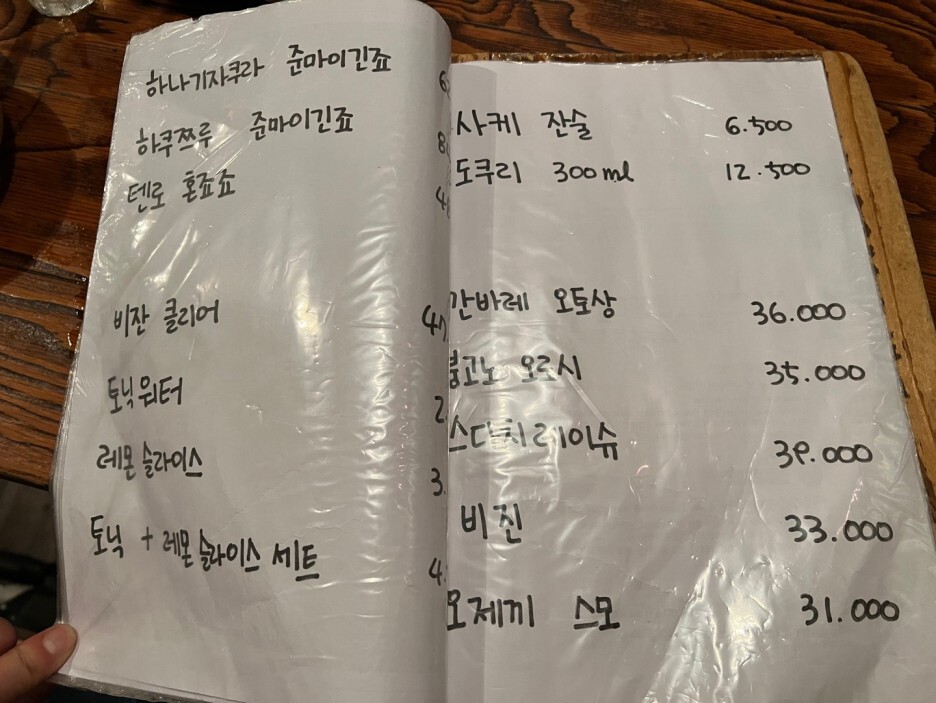 하나기자쿠라 준마이긴죠
하쿠쯔루 준마이긴죠
텐로 혼죠죠
비잔 클리어
토닉워터
레몬 슬라이스
토닉 + 레몬 슬라이스 세트
사케 잔술 6.500
도쿠리 300ml 12.500
간바레 오토상 36.000
오르시 35.000
스다치 레이슈 39.000
비진 33.000
오제끼 스모 31.000